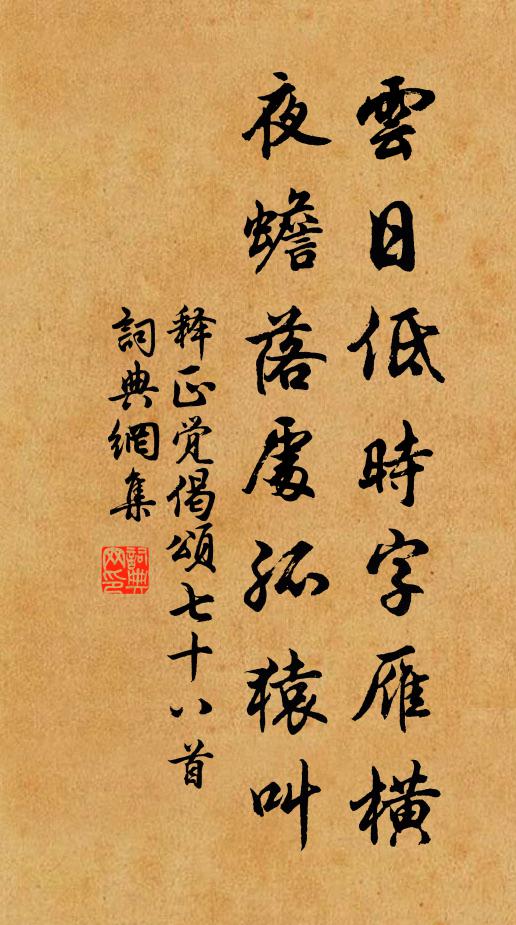 雲日低時字雁橫
夜蟾落處孤猿叫
释正觉偈頌七十八首
詞典網集
詞典網印